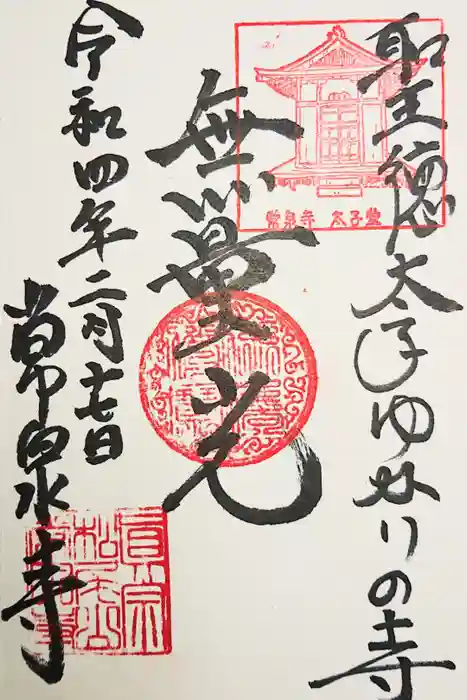 聖徳太子ゆかりの寺
常泉寺 太子堂
無量光
令和四年二月十七日
常泉寺
眞宗